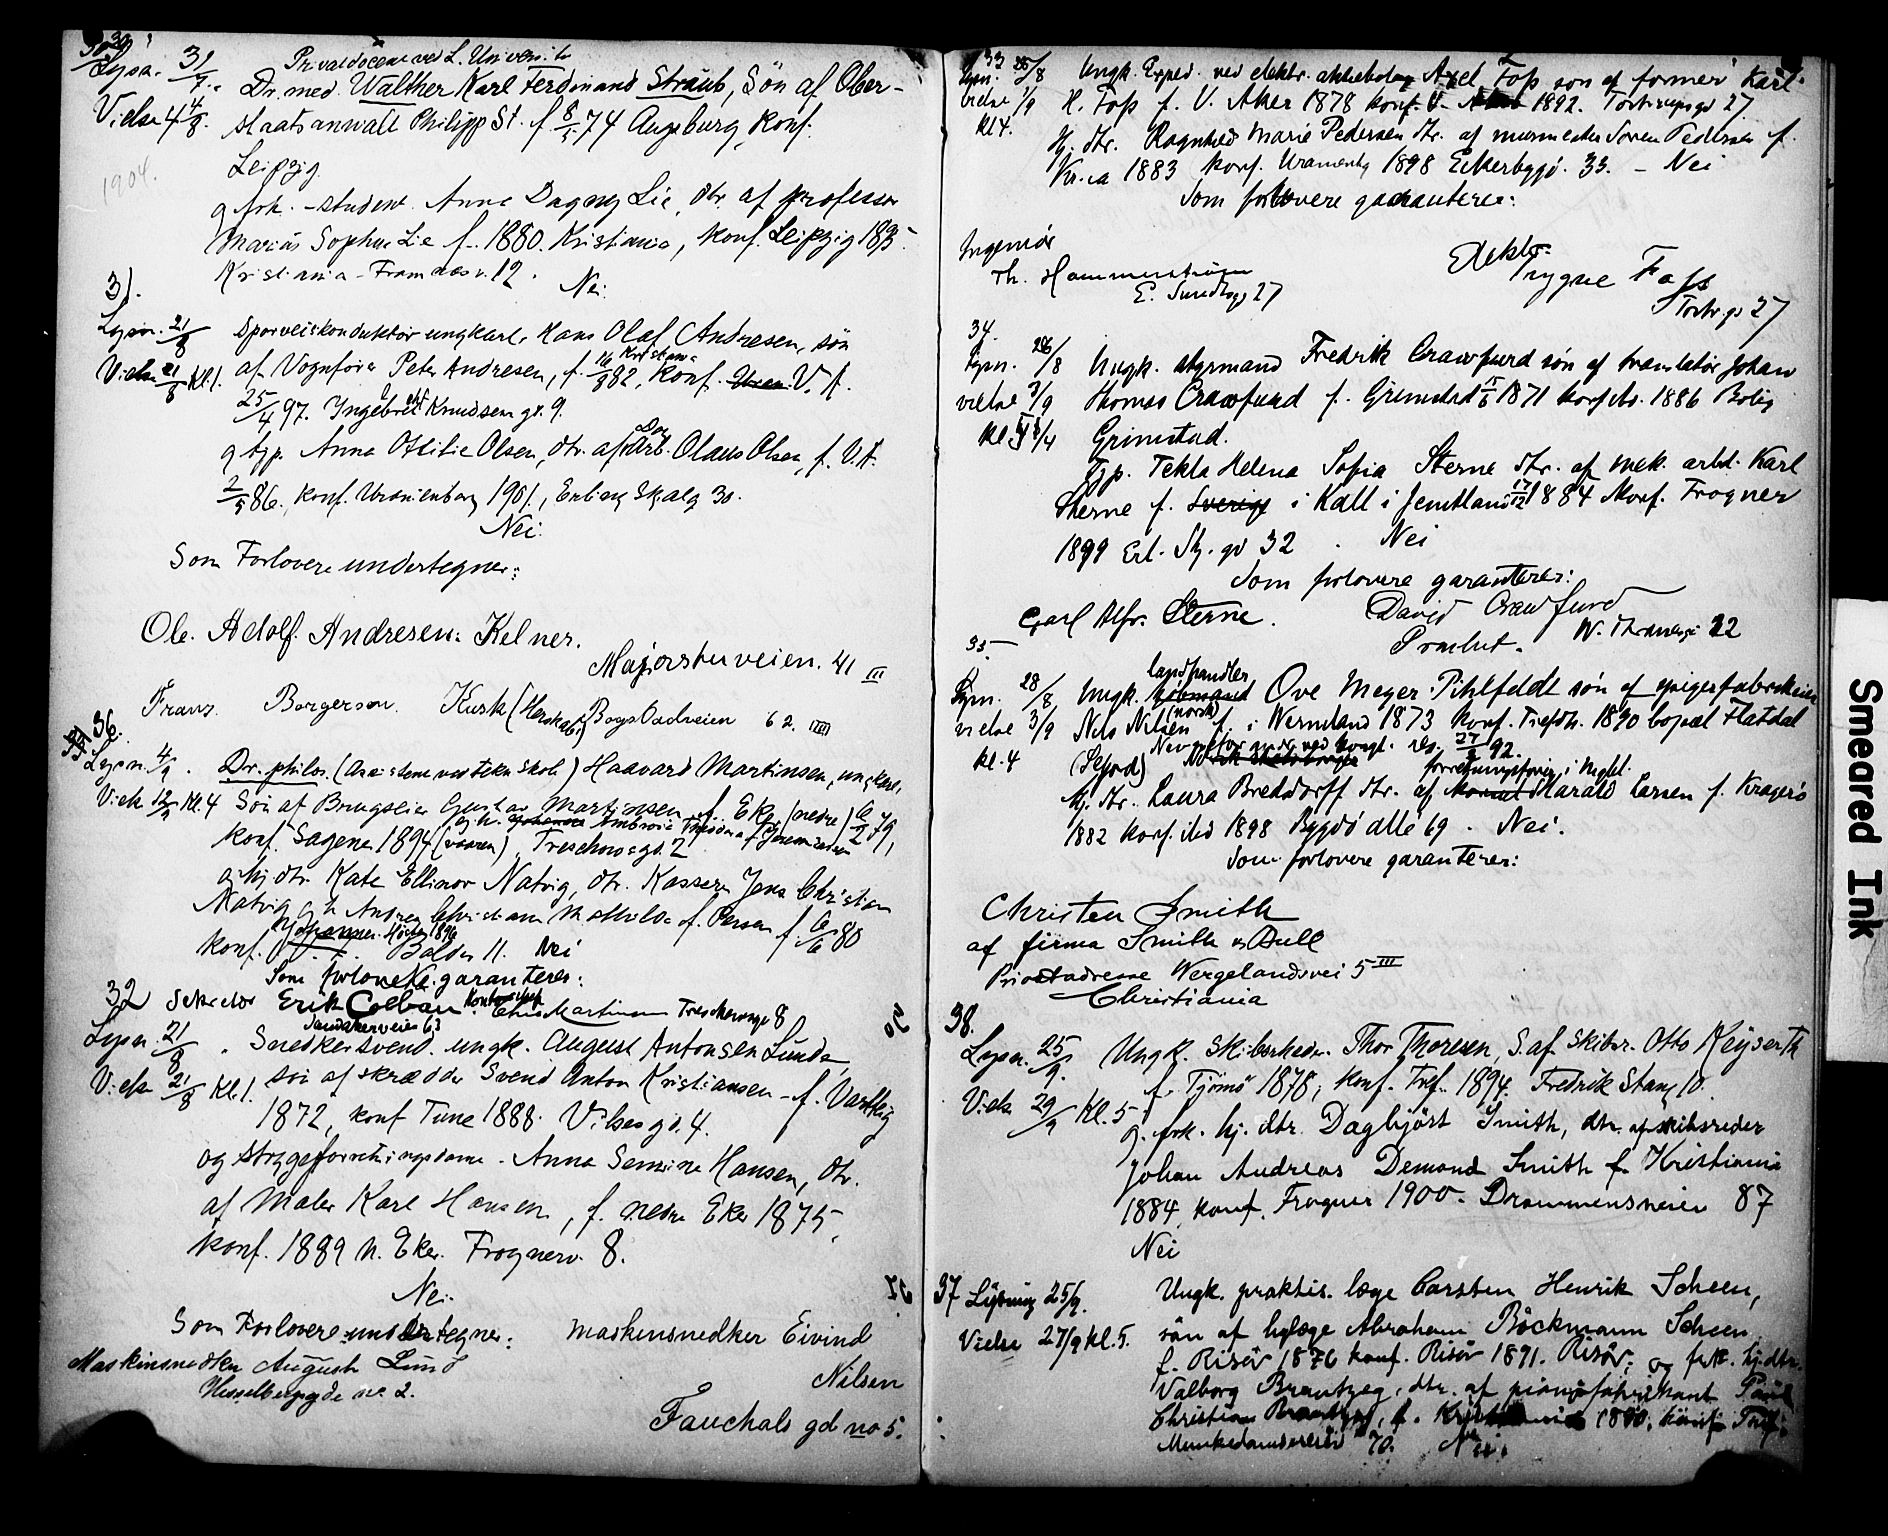 30
Lysn. 31/7. Privatdocent ved L. Universitet
Dr. med. Walther Karl Ferdinand Straub, Søn af Ober-
Vielse 4 4/8. staatsanwalt Philipp St. f. 8/5 74 Augsburg, Konf.
Leipzig.
1904.
g frk. student Anna Dagny Lie, dtr. af professor
Marius Sophus Lie f. 1880. Kristiania, konf. Leipzig 1895.
Kristiania - Framnæsv. 12. Nei.
31.
Lysn. 21/8 Sporveiskonduktør ungkarl, Hans Olaf Andresen, søn
Vielse 21/8 Kl. 1. af Vognfører Peter Andresen, f. Kristiania 16/9 82, konf. V. A.
25/4 97. Ingebret Knudsen gd. 9.
g tjp. Anna Otilie Olsen, dtr. af Arb. Olaus Olsen, f. V. A.
2/5 86, konf. Uranienborg 1901, Erling Skalg 30.
Nei.
Som Forlovere undertegner:
Ole Adolf Andresen. Kelner.
Majorstuveien. 41 III
Franz Borgersen Kusk (Herskabs) Bogstadveien 62 IIII
36.
Lysn. 4/9. Dr. philos. (Assistent ved tekn skole) Haavard Martinsen, ungkarl,
Vielse 12/9 Kl. 4 Søn af Brugseier Gustav Martinsen f. Eker (nedre) 6/2 79,
og h. Ambrosia f. Jeremiassen
konf. Sagene 1894 (vaaren), Treschowsgd. 2
g hj dtr Kate Ellinor Natvig, dtr. Kasserer Jens Christian
Natvig g h Andrea Christiane Mathilde f. Persen f. 6/6 80
konf. 1896 Balders 11. Nei
Som forlovere garanterer:
Sekretær Erik Colban Chr. Martinsen Treschowsg 8
Sandakerveien 63
32
Lysn. 21/8. Snedkersvend ungk. August Antonsen Lunde,
Vielse 21/8 Kl. 1. søn af skrædder Svend Anton Kristiansen f. Varteig
1872, konf Tune 1888. Vibesgd. 4.
og strygeforretningsdame Anna Semine Hansen, dtr.
af Maler Karl Hansen, f. nedre Eker 1875,
konf. 1889 N. Eker. Frognerv. 8.
Nei.
Som Forlovere undertegner: Maskinsnedker Eivind
Maskinsnedker August Lund Nilsen
Hesselbergsgde no. 2.
Fauchals gd no 5.
33
Lysn. 25/8 Ungk. Exped. ved elektr. aktiebolag Axel Foss søn af former Karl
vielse 1/9 H. Foss f. V. Aker 1878 konf. 1892. Tostrupsgd 27
kl 4. Hj. dtr. Ragnhild Marie Pedersen dtr. af murmester Søren Pedersen f.
Kr.ia 1883 konf. Uranienbg 1898 Eckersbggd. 33. - Nei
Som forlovere garanterer:
Ingeniør Th. Hammerstrøm
E. Sundtsg 27
Elektr. Trygve Foss
Tostr.gd 27
34.
Lysn. 26/8 Ungk. styrmand Fredrik Crawfurd søn af translatør Johan
vielse 3/9 Thomas Crawfurd f. Grimstad 15/6 1871 konf. ibd. 1886 Bolig
kl. Grimstad.
Tjp. Tekla Helena Sofia Sterne dtr. af mek. arbd. Karl
Sterne f. Sverige i Kall i Jemtland 17/12 1884 Konf. Frogner
1899 Erl. Sk. gd 32. Nei
Som forlovere garanterer:
Carl Alfr. Sterne. David Crawfurd
W. Thranesgd 22
35.
Lysn. 28/8 Ungk. landhandler Ove Meyer Pihlfeldt søn af spigerfabrikeier
vielse 3/9 Nils Nilsen (norsk) f. i Wermland 1873 konf. Trefdh. 1890 bopæl Flatdal
kl. 4 (Seljord) 27/8 92.
Hj. dtr. Laura Bredsdorff dtr. af forretningsfører i Mgbl. Harald Larsen f. Kragerø
1882 konf. ibd 1898 Bygdø allé 69. Nei.
Som forlovere garanterer:
Christen Smith
af firma Smith & Bull
Privatadresse Wergelandsvei 5 III
Christiania
38.
Lysn. 25/9. Ungk. Skibsreder Thor Thoresen, S. af Skibsr. Otto Keyserth
Vielse 29/9 Kl. 5 f. Tjømø 1878, konf. Tref. 1894. Fredrik Stang 10.
g. frk. hj. dtr. Dagbjört Smith, dtr. af skibsreder
Johan Andreas Demond Smith f. Kristiania
1884, konf. Frogner 1900. Drammensveien 87
Nei
37 Lysning 25/9. Ungk. praktis. læge Carsten Henrik Scheen,
Vielse 27/9 kl. 5. søn af læge Abraham Böckmann Scheen
f. Risør 1876 konf. Risør 1891. Risør; og frk. hj. dtr.
Valborg Brantzeg, dtr. af pianofabrikant Paul
Christian Brantzeg, f. Kristiania 1880, konf. Tref.
Munkedamsveien 70. Nei.
Smeared Ink